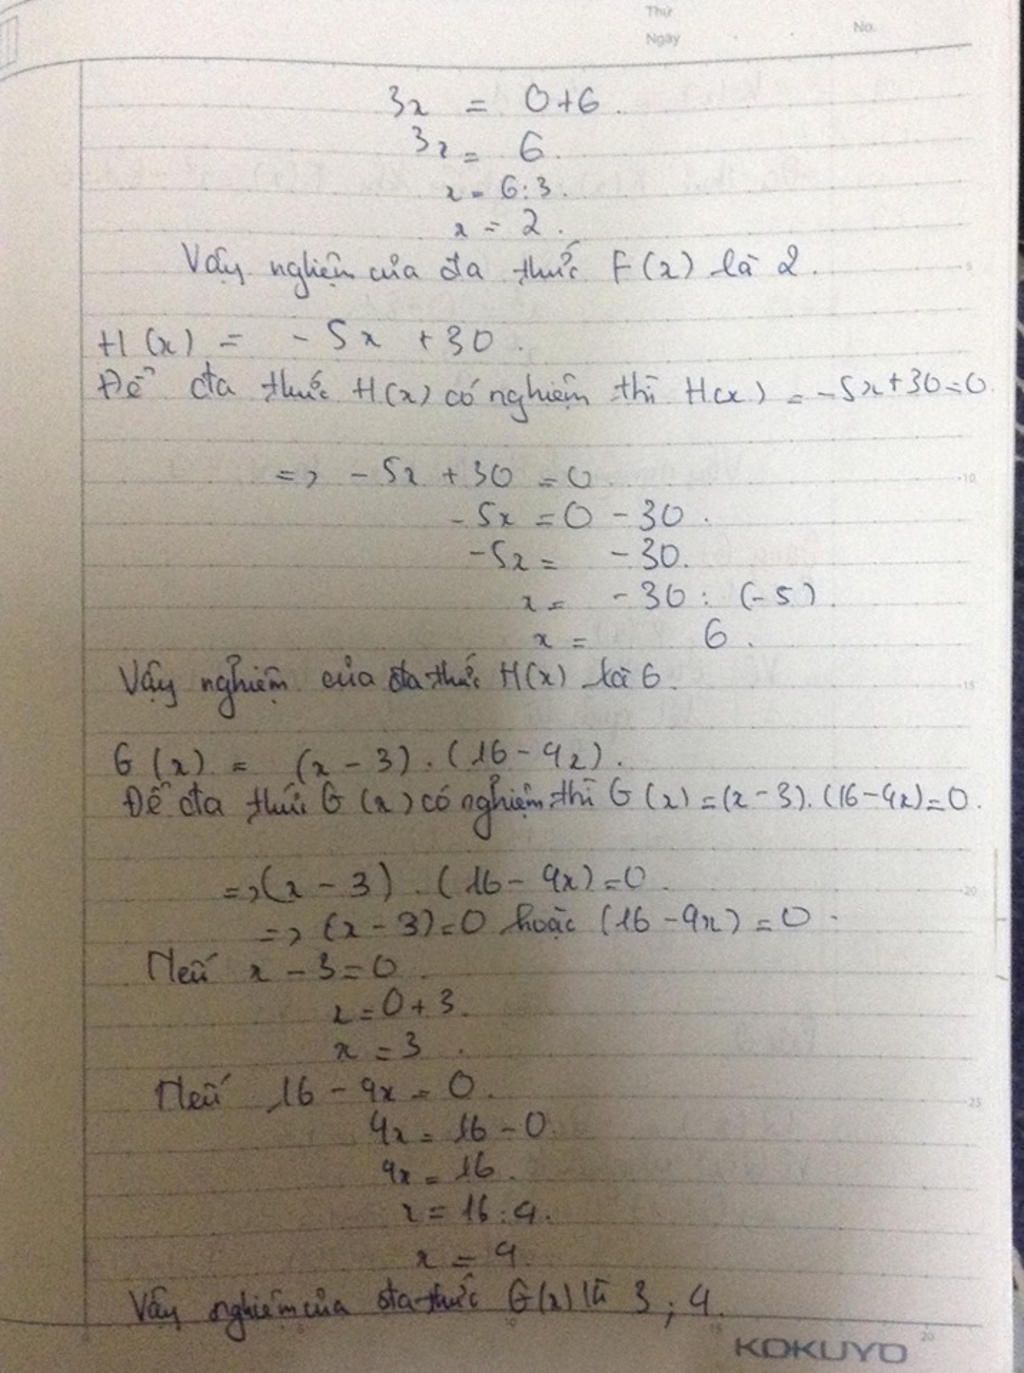 Thứ
Ngày
No.
3x = 0+6.
3x = 6.
x = 6:3.
x = 2.
Vậy nghiệm của đa thức F(x) là 2.
H(x) = -5x +30.
Để đa thức H(x) có nghiệm thì H(x) = -5x+30=0.
=> -5x +30 =0
-5x =0 -30.
-5x = -30.
x= -30: (-5).
x= 6.
Vậy nghiệm của đa thức H(x) là 6.
G(x) = (x-3).(16-4x).
Để đa thức G(x) có nghiệm thì G(x)=(x-3).(16-4x)=0.
=>(x-3).(16-4x)=0.
=> (x-3)=0 hoặc (16-4x)=0.
Nếu x-3=0.
x=0+3.
x=3.
Nếu 16-4x=0.
4x=16-0.
4x=16.
x=16:4.
x=4.
Vậy nghiệm của đa thức G(x) là 3; 4.
KOKUYO
5
10
15
20
25
5
10
15
20